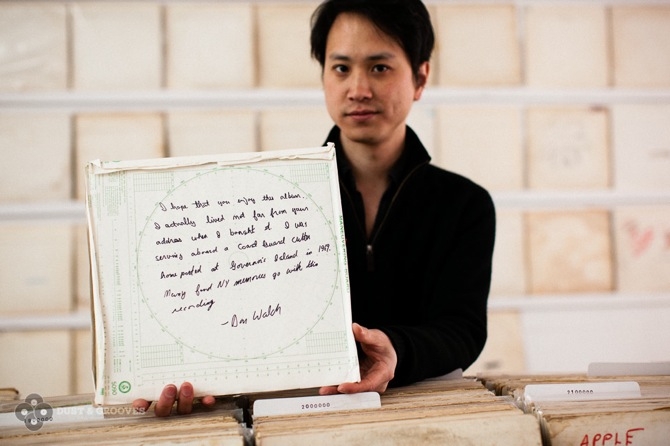 I hope that you enjoy this album.
I actually lived not far from your
address when I bought it. I was
serving aboard a Coast Guard Cutter
home ported at Governor's Island in 1969.
Many fond NY memories go with this
recording
- Don Walch
DUST & GROOVES
2000000
2100000
APPLE